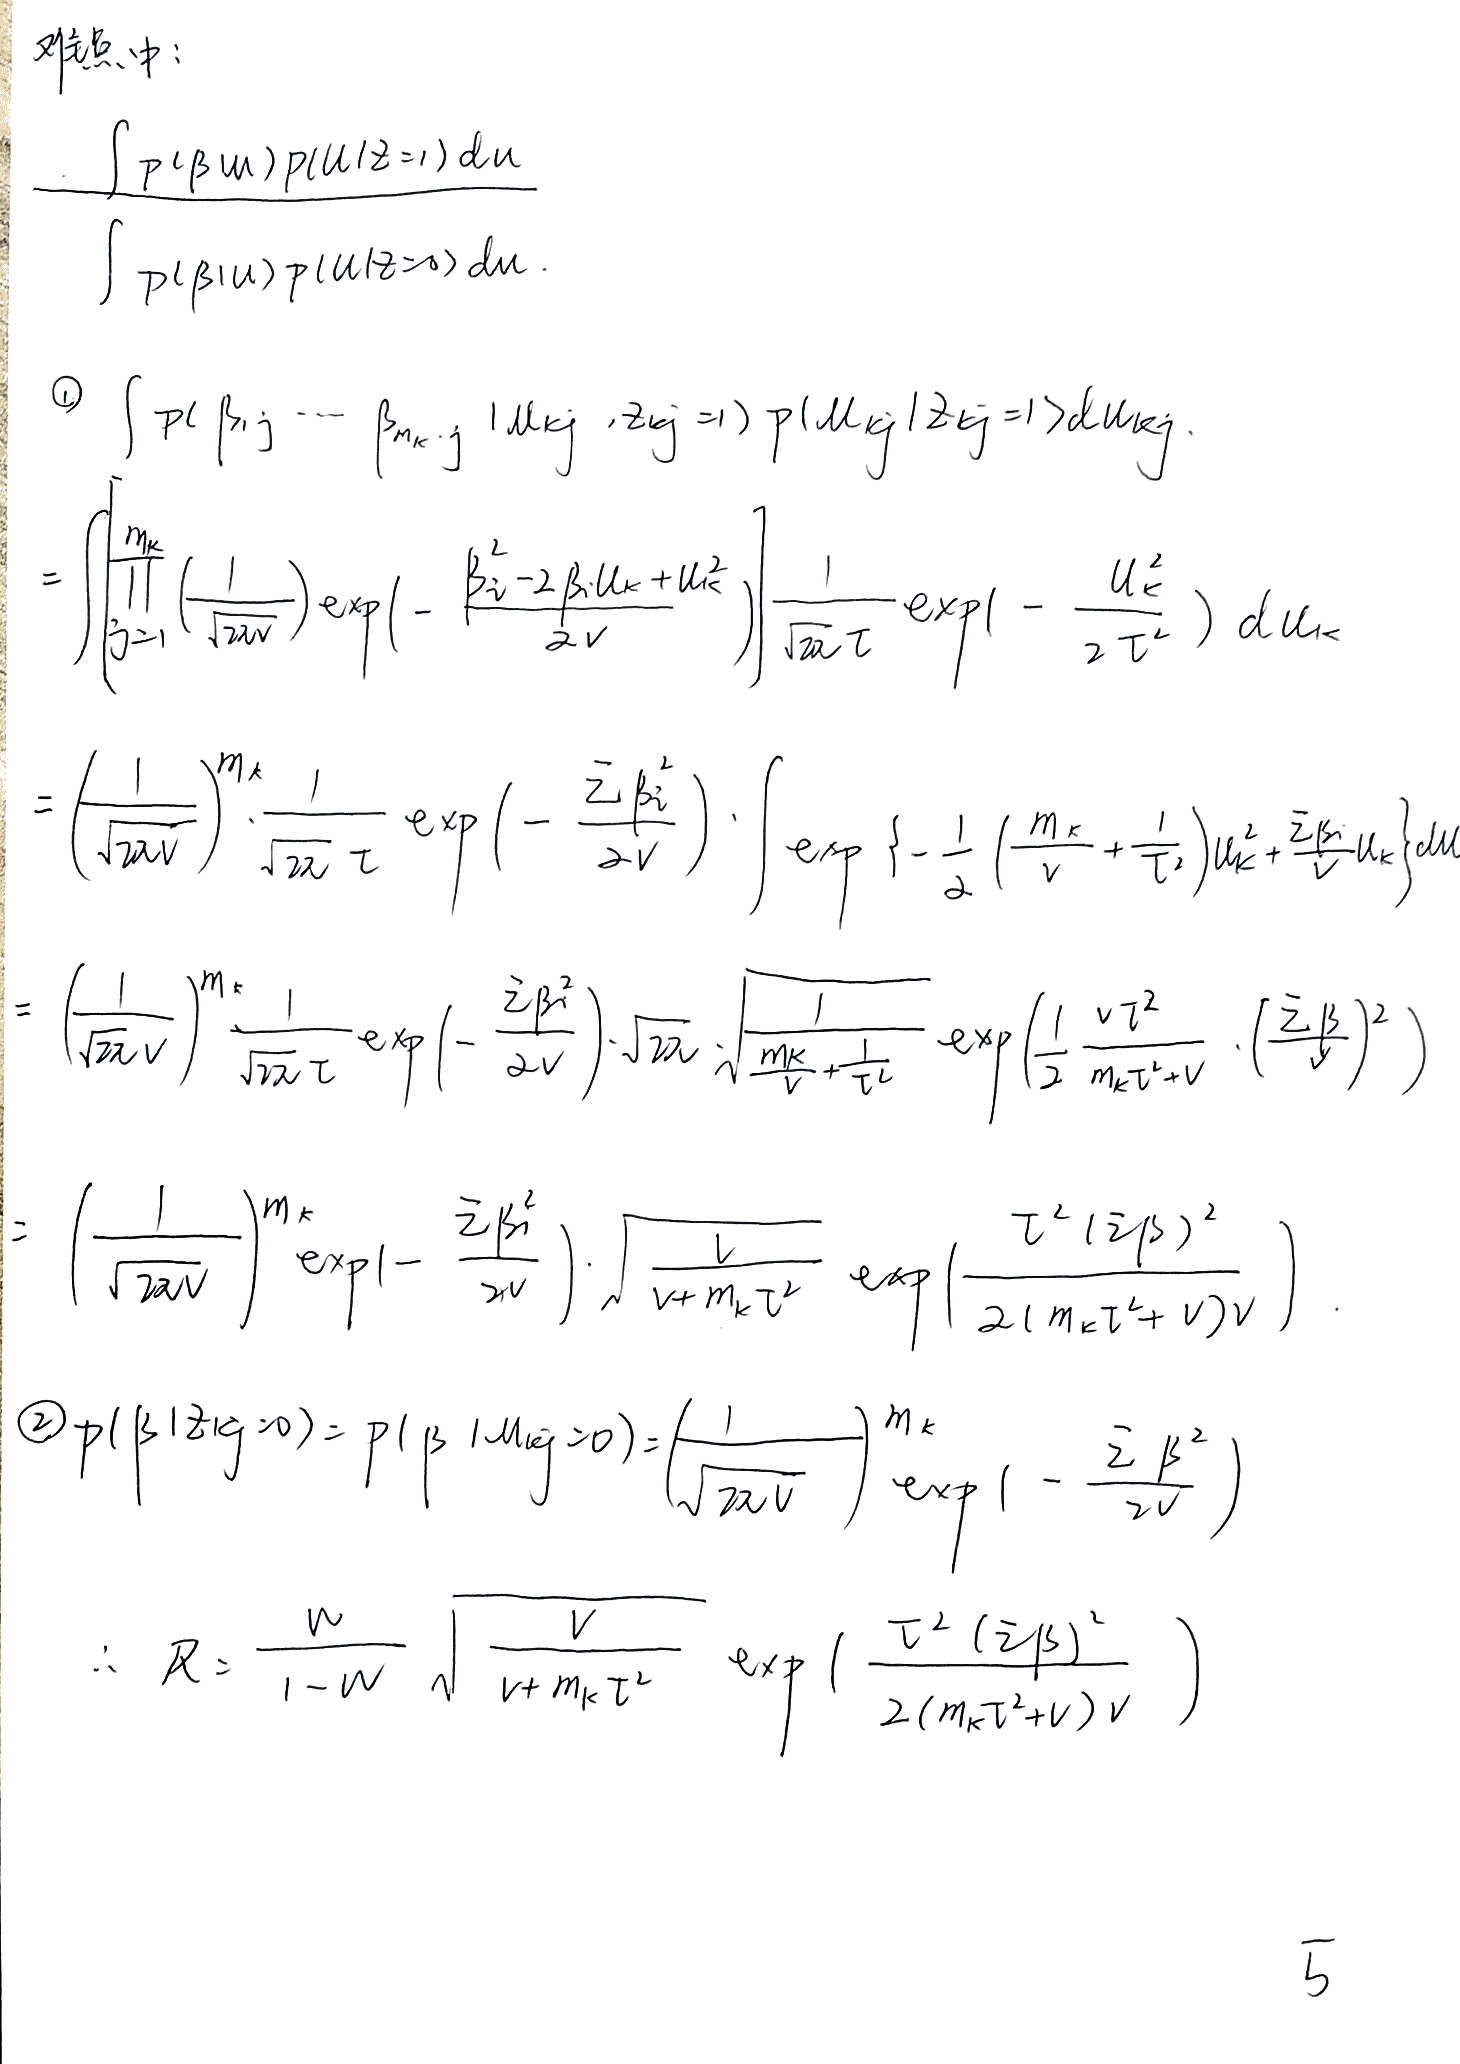 难点中：
∫ p(β|u) p(u|z=1) du
∫ p(β|u) p(u|z=0) du.
① ∫ p( β₁j ⋯ β_{m_k·j} | u_kj , z_kj =1) p(u_kj | z_kj =1) du_kj.
= ∫ [ ∏_{j=1}^{m_k} (1/√(2πv)) exp( - (β_i² - 2β_i u_k + u_k²)/(2v) ) ] 1/(√(2π) τ) exp( - u_k²/(2τ²) ) du_k
= (1/√(2πv))^{m_k} · 1/(√(2π) τ) exp( - Σβ_i²/(2v) ) · ∫ exp { - 1/2 ( m_k/v + 1/τ² ) u_k² + Σβ_i/v u_k } du
= (1/(√(2π) v))^{m_k} 1/(√(2π) τ) exp( - Σβ_i²/(2v) ) · √(2π) · √( 1/( m_k/v + 1/τ² ) ) exp( 1/2 vτ²/(m_kτ²+v) · (Σβ/v)² )
= (1/√(2πv))^{m_k} exp( - Σβ_i²/(2v) ) · √( v/(v+m_kτ²) ) exp( τ²(Σβ)²/(2(m_kτ²+v)v) ).
② p(β|z_kj=0) = p(β|u_kj=0) = (1/√(2πv))^{m_k} exp( - Σβ²/(2v) )
∴ R = w/(1-w) √( v/(v+m_kτ²) ) exp( τ²(Σβ)²/(2(m_kτ²+v)v) )
5